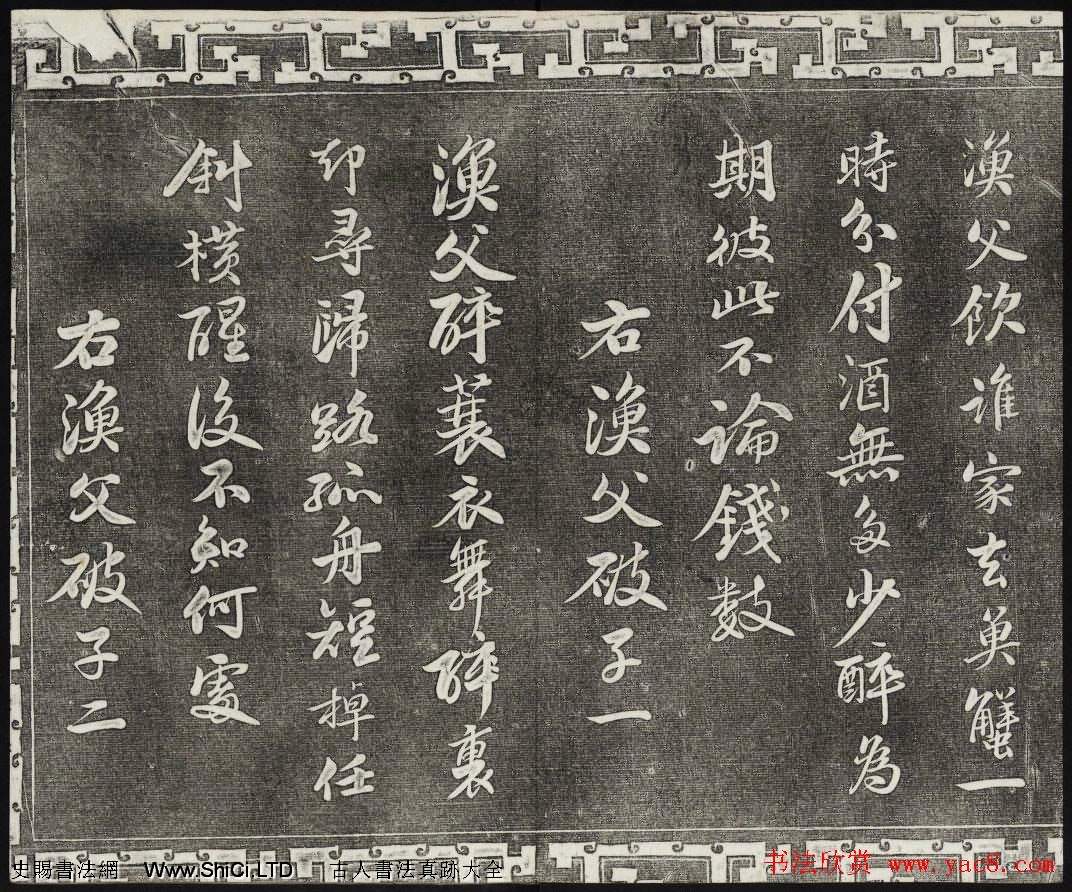 漁父飲誰家去魚蟹一
時分付酒無多少醉為
期彼此不論錢數
右漁父破子一
漁父醉蓑衣舞醉裏
却尋歸路孤舟短棹任
斜橫醒後不知何處
右漁父破子二
史賜書法網 Www.ShiCi.LTD 古人書法真跡大全
书法欣赏 www.yac8.com